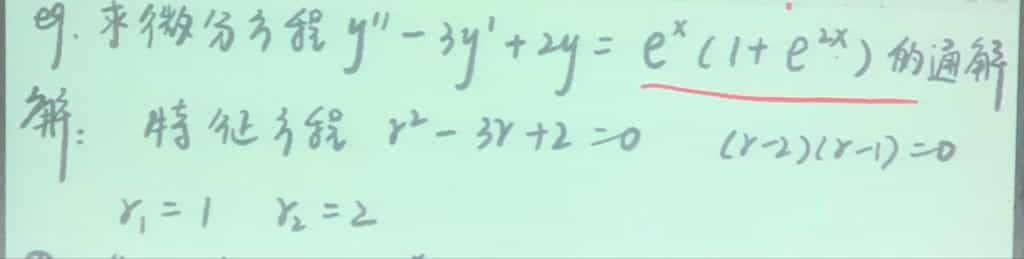 eg. 求微分方程 y'' - 3y' + 2y = e^x (1 + e^{2x}) 的通解
解: 特征方程 r² - 3r + 2 = 0 (r-2)(r-1) = 0
r₁ = 1 r₂ = 2